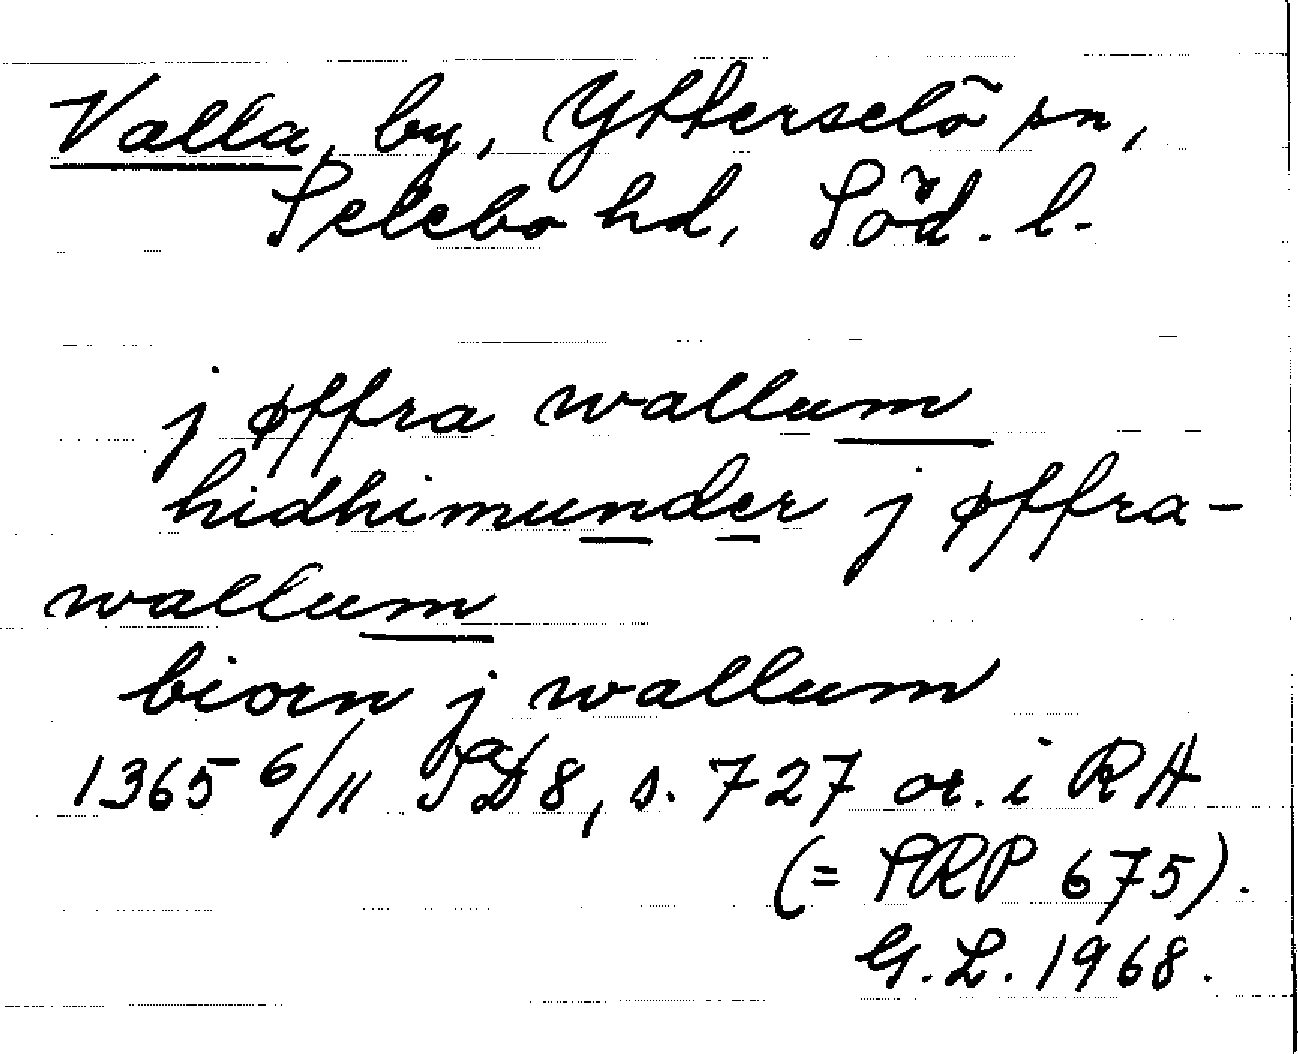 Valla, by, Ytterselö sn,
Selebo hd, Söd. l.
j øffra wallum
hidhimunder j øffra-
wallum
biorn j wallum
1365 6/11 SD 8, s. 727 or. i RA
(= SRP 675).
G. L. 1968.